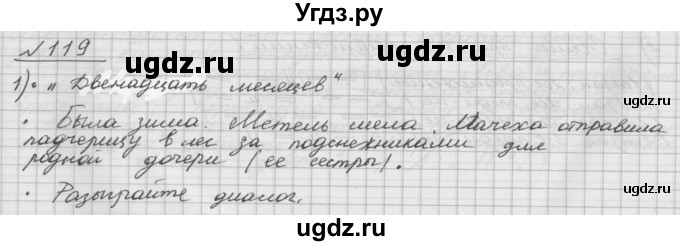 Угдз.ру
№119
ugdz.ru ugdz.ru
1)• „Двенадцать месяцев"
• Была зима. Метель мела. Мачеха отправила
падчерицу в лес за подснежниками для
родной дочери (ее сестры).
ugdz.ru ugdz.ru
• Разыграйте диалог.
ugdz.ru ugdz.ru